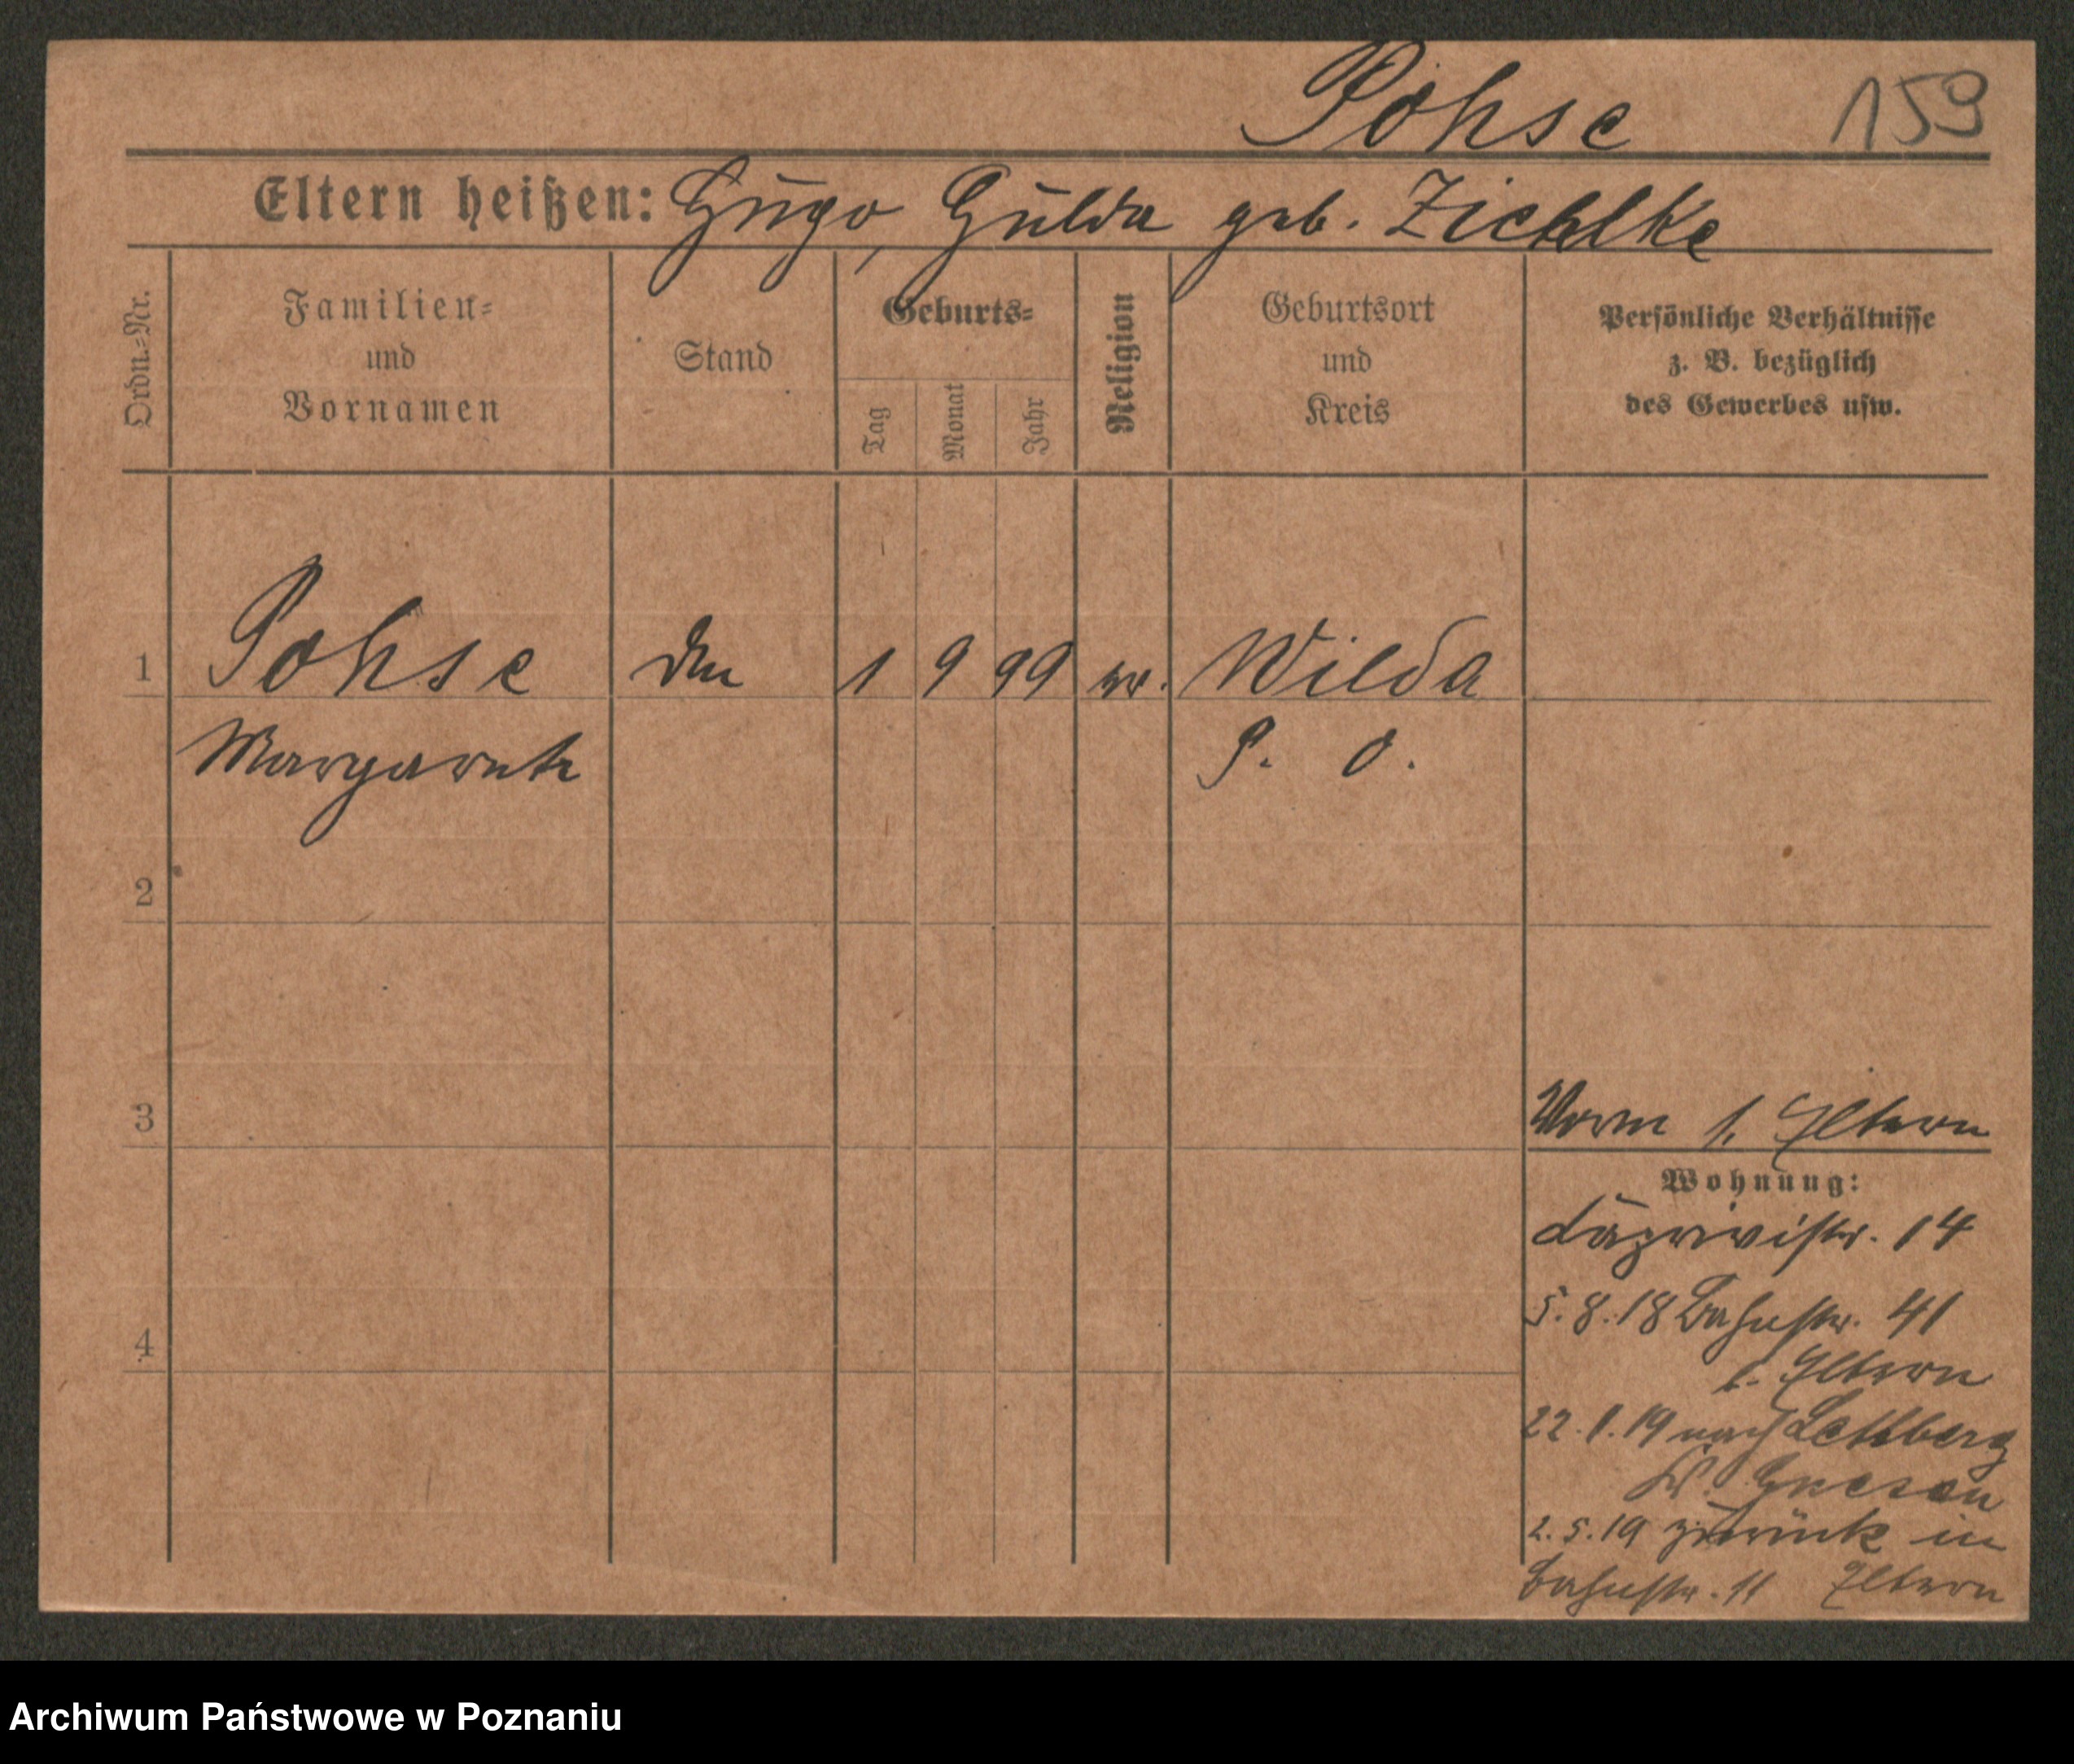 Pohse 159
Eltern heißen: Hugo, Hulda geb. Zichlke
Ordn.=Nr.
Familien=
und
Vornamen
Stand
Geburts=
Tag
Monat
Jahr
Religion
Geburtsort
und
Kreis
Persönliche Verhältnisse
z. B. bezüglich
des Gewerbes usw.
1 Pohse 1 9 99 ev. Wilda
Margarete P. O.
2
3
Vorm b. Eltern
Wohnung:
Caprivistr. 14
4
5.8.18 Bahnstr. 41
b. Eltern
22.1.19 nach Lettberg
Kr. Gnesen
2.5.19 zurück in
Bahnstr. 11 Eltern
Archiwum Państwowe w Poznaniu